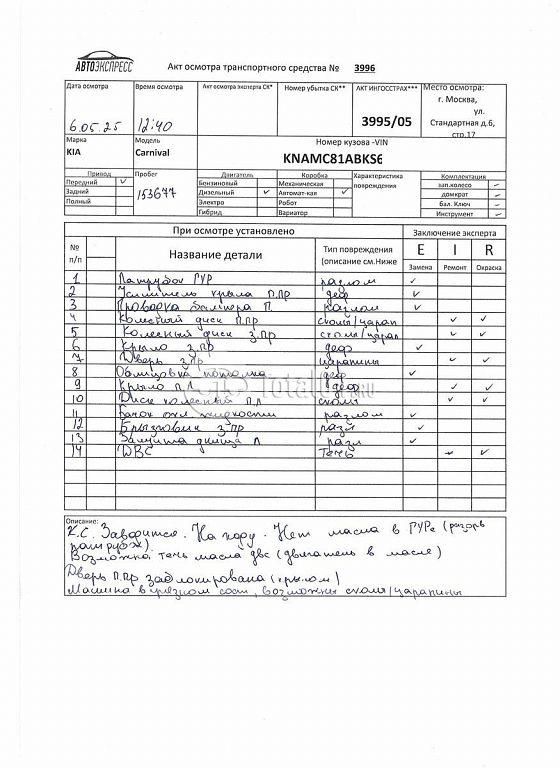 АВТОЭКСПРЕСС
Акт осмотра транспортного средства № 3996
Дата осмотра Время осмотра Акт осмотра эксперта СК* Номер убытка СК** АКТ ИНГОССТРАХ*** Место осмотра:
г. Москва,
ул.
6.05.25 12:40 3995/05 Стандартная д.6,
стр.17
Марка Модель Номер кузова -VIN
KIA Carnival KNAMC81ABKS6
Привод Пробег Двигатель Коробка Характеристика повреждения Комплектация
Передний ✓ Бензиновый Механическая зап.колесо ✓
Задний 153677 Дизельный ✓ Автомат-кая ✓ домкрат ✓
Полный Электро Робот бал. Ключ ✓
Гибрид Вариатор Инструмент ✓
При осмотре установлено Заключение эксперта
№ п/п Название детали Тип повреждения (описание см.Ниже E I R
Замена Ремонт Окраска
1 Патрубок ГУР разлом ✓
2 Усилитель крыла П.Пр деф ✓
3 Проводка бампера П. разлом ✓
4 Колесный диск П.Пр сколы/царап ✓ ✓
5 Колесный диск З.Пр сколы/царап ✓ ✓
6 Крыло З.Пр деф ✓
7 Дверь З.Пр царапины ✓ ✓
8 Обшивка потолка деф ✓
9 Крыло П.Л деф ✓ ✓
10 Диск колесный П.Л сколы ✓ ✓
11 Бачок охл. жидкости разлом ✓
12 Брызговик З.Пр разл ✓
13 Защита днища Л разл ✓
14 ДВС течь ✓ ✓
Total01.RU
Описание:
К.С. Заводится. На ходу. Нет масла в ГУРе (разрыв
патрубка).
Возможна течь масла двс (двигатель в масле)
Дверь П.Пр заблокирована (крылом)
Машина в грязном сост, возможны сколы/царапины